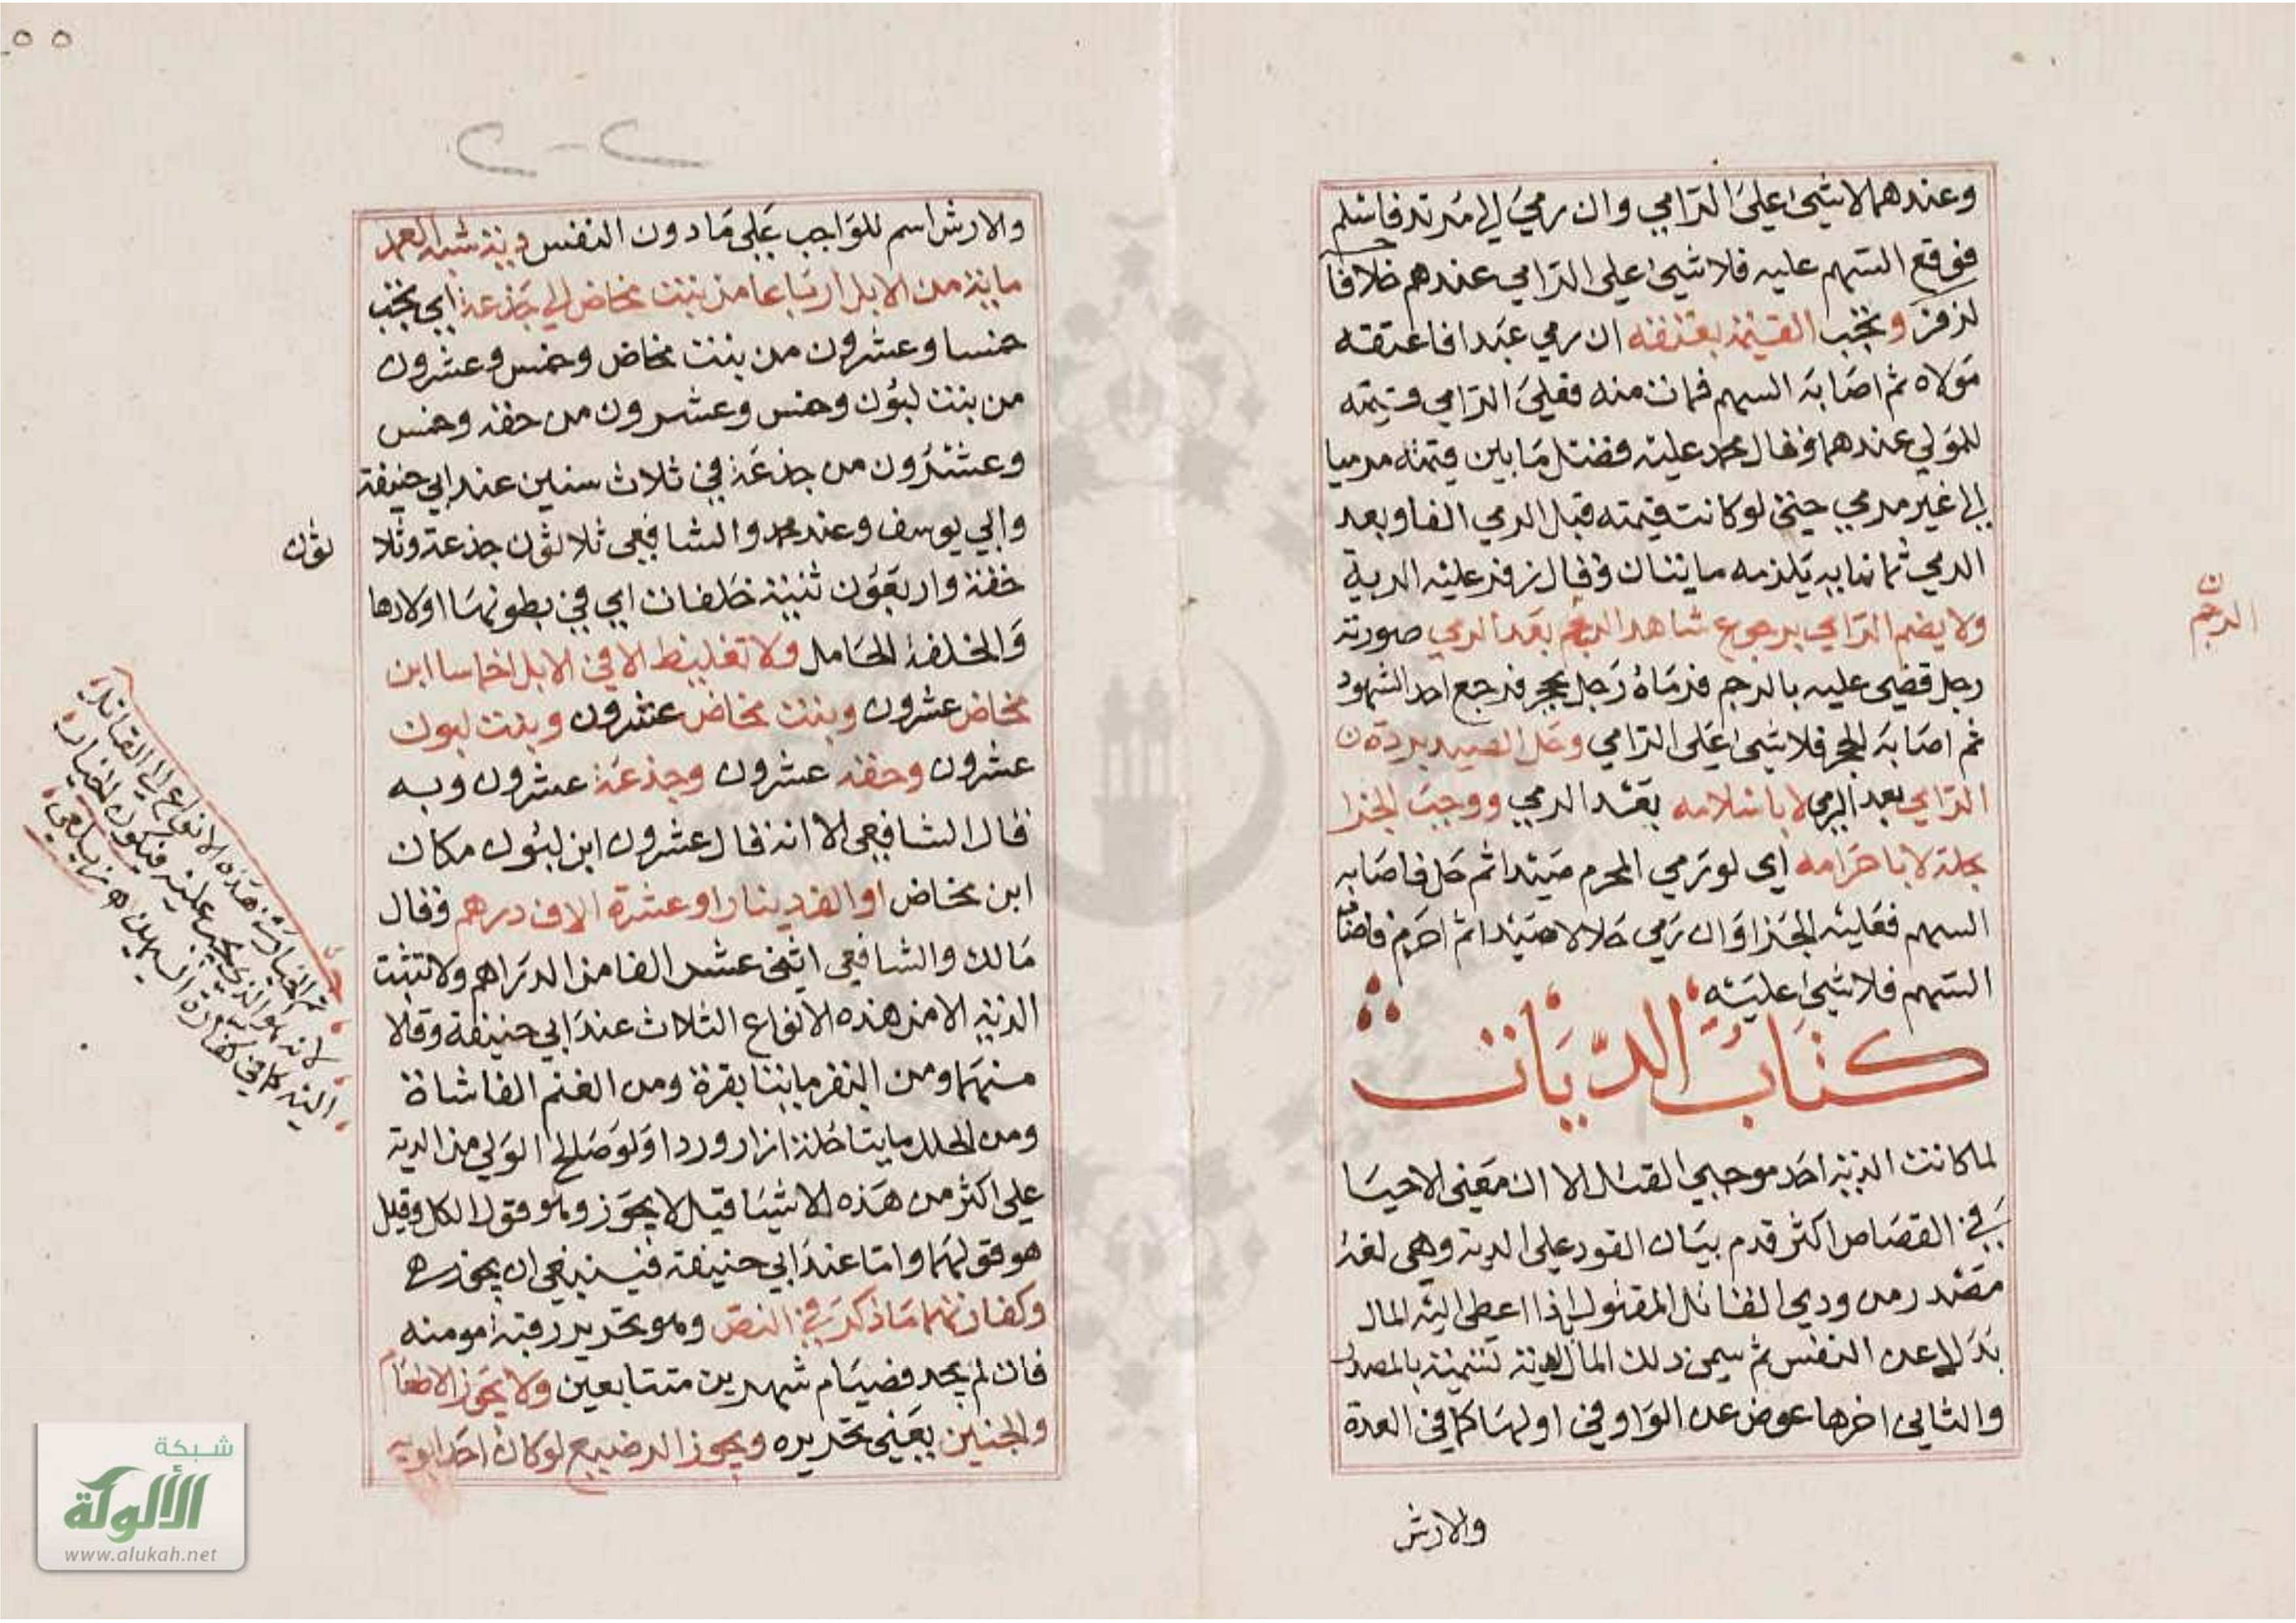 وعندهما لا شيء على الرامي وان رمي الي مرتد فاسلم
فوقع السهم عليه فلا شيء على الرامي عندهم خلافا
لزفر وتجب القيمة بعتقه ان رمي عبدا فاعتقه
مولاه ثم اصابه السهم فمات منه فعلي الرامي قيمته
للمولي عندهما وقال محمد عليه فضل ما بين قيمته مرميا
الي غير مرمي حتى لو كانت قيمته قبل الرمي الفا وبعد
الرمي ثمانمايه يلزمه مايتان وقال زفر عليه الدية
ولا يضمن الرامي برجوع شاهد الرجم بعد الرمي صورته
رجل قضي عليه بالرجم فرماه رجل بحجر فرجع احد الشهود
ثم اصابه الحجر فلا شيء على الرامي وحل الصيد بردة
الرامي بعد الرمي لا باسلامه بعد الرمي ووجب الجزا
بحله لا باحرامه اي لو رمي المحرم صيدا ثم حل فاصابه
السهم فعليه الجزا وان رمي حلالا صيدا ثم احرم فاصابه
السهم فلا شيء عليه
كتاب الديات
لما كانت الدية احد موجبي القتل الا ان معني الاحيا
في القصاص اكثر قدم بيان القود علي الدية وهي لغة
مصدر من ودي القاتل المقتول اذا اعطي اليه المال
بدلا عن النفس ثم سمي ذلك المال دية تسمية بالمصدر
والثاني اخرها عوض عن الواو في اولها كما في العدة
والارش
الرجم
والارش اسم للواجب علي ما دون النفس دية شبه العمد
ماية من الابل ارباعا من بنت مخاض الي جذعة اي تجب
خمسا وعشرون من بنت مخاض وخمس وعشرون
من بنت لبون وخمس وعشرون من حقه وخمس
وعشرون من جذعة في ثلاث سنين عند ابي حنيفة
وابي يوسف وعند محمد والشافعي ثلاثون جذعة وثلا
ثون
حقة واربعون ثنية خلفات اي في بطونها اولادها
والخلفة الحامل ولا تغليظ الا في الابل اخماسا ابن
مخاض عشرون وبنت مخاض عشرون وبنت لبون
عشرون وحقه عشرون وجذعة عشرون وبه
قال الشافعي الا انه قال عشرون ابن لبون مكان
ابن مخاض او الف دينار او عشرة الاف درهم وقال
مالك والشافعي اثني عشر الفا من الدراهم ولا تثبت
الدية الا من هذه الانواع الثلاث عند ابي حنيفة وقالا
منهما ومن البقر مايتا بقرة ومن الغنم الفا شاة
ومن الحلل مايتا حلة ازار وردا ولو صالح الولي من الدية
علي اكثر من هذه الاشيا قيل لا يجوز وهو قول الكل وقيل
هو قولهما واما عند ابي حنيفة فينبغي ان يجوز
وكفارتهما ما ذكر في النص وهو تحرير رقبة مومنه
فان لم يجد فصيام شهرين متتابعين ولا يجوز الاطعام
والجنين يعني تحريره ويجوز الرضيع لو كان احد ابويه
ثم الخيار في هذه الانواع الي القاتل
لانه هو الذي يجب عليه فيكون الخيار
اليه كما في كفارة اليمين زيلعي
شبكة
الألوكة
www.alukah.net